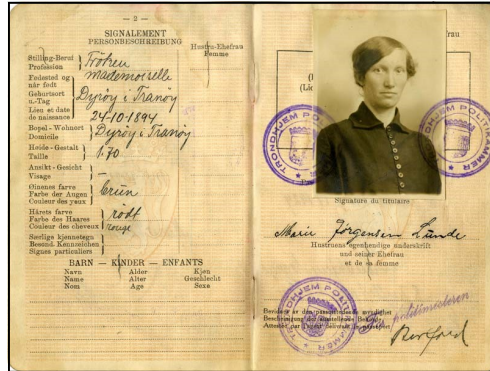 — 2 —
SIGNALEMENT
PERSONBESCHREIBUNG
Hustru-Ehefrau
Femme
Stilling-Beruf
Profession
Frøken
mademoiselle
Fødested og
når født
Geburtsort
u.-Tag
Lieu et date
de naissance
Dyrøy i Tranøy
24-10-1894
Bopel - Wohnort
Domicile
Dyrøy i Tranøy
Høide - Gestalt
Taille
1.70
Ansikt - Gesicht
Visage
Øinenes farve
Farbe der Augen
Couleur des yeux
brun
Hårets farve
Farbe des Haares
Couleur des cheveux
rødt
rouge
Særlige kjennetegn
Besond. Kennzeichen
Signes particuliers
BARN — KINDER — ENFANTS
Navn Alder Kjøn
Name Alter Geschlecht
Nom Age Sexe
rau
TRONDHJEM POLITIKAMMER
Signature du titulaire
Marie Jørgensen Lunde
Hustruens egenhendige underskrift
und seiner Ehefrau
et de sa femme
TRONDHJEM POLITIKAMMER
politimesteren